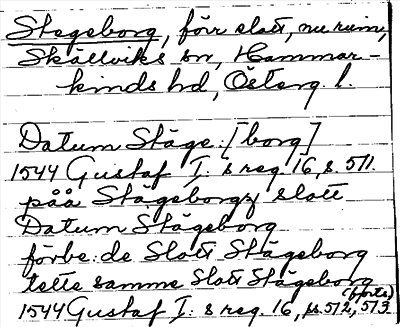 Stegeborg, förr slott, nu ruin,
Skällviks sn, Hammar-
kinds hd, Österg. l.
Datum Stäge: [borg]
1544 Gustaf I: s reg. 16, s. 571.
påå Stägeborgz slott
Datum Stägeborg
förbe: de Slott Stägeborg
tette samme Slott Stägeborg
(forts)
1544 Gustaf I: s reg. 16, ss. 572, 573